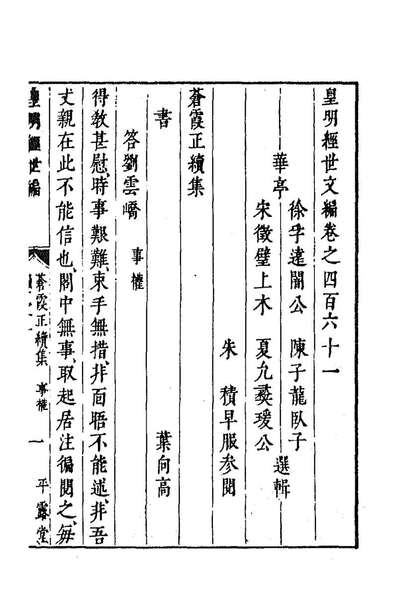 皇明經世文編卷之四百六十一
徐孚遠闇公 陳子龍臥子
華亭 選輯
宋徵璧上木 夏九彝瑗公
朱 積早服參閱
蒼霞正續集 葉向高
書
答劉雲嶠 事權
得教甚慰、時事艱難、束手無措、非面晤不能述、非吾
丈親在此不能信也、閣中無事、取起居注徧閱之、每
皇明經世編 蒼霞正續集 事權 一 平露堂